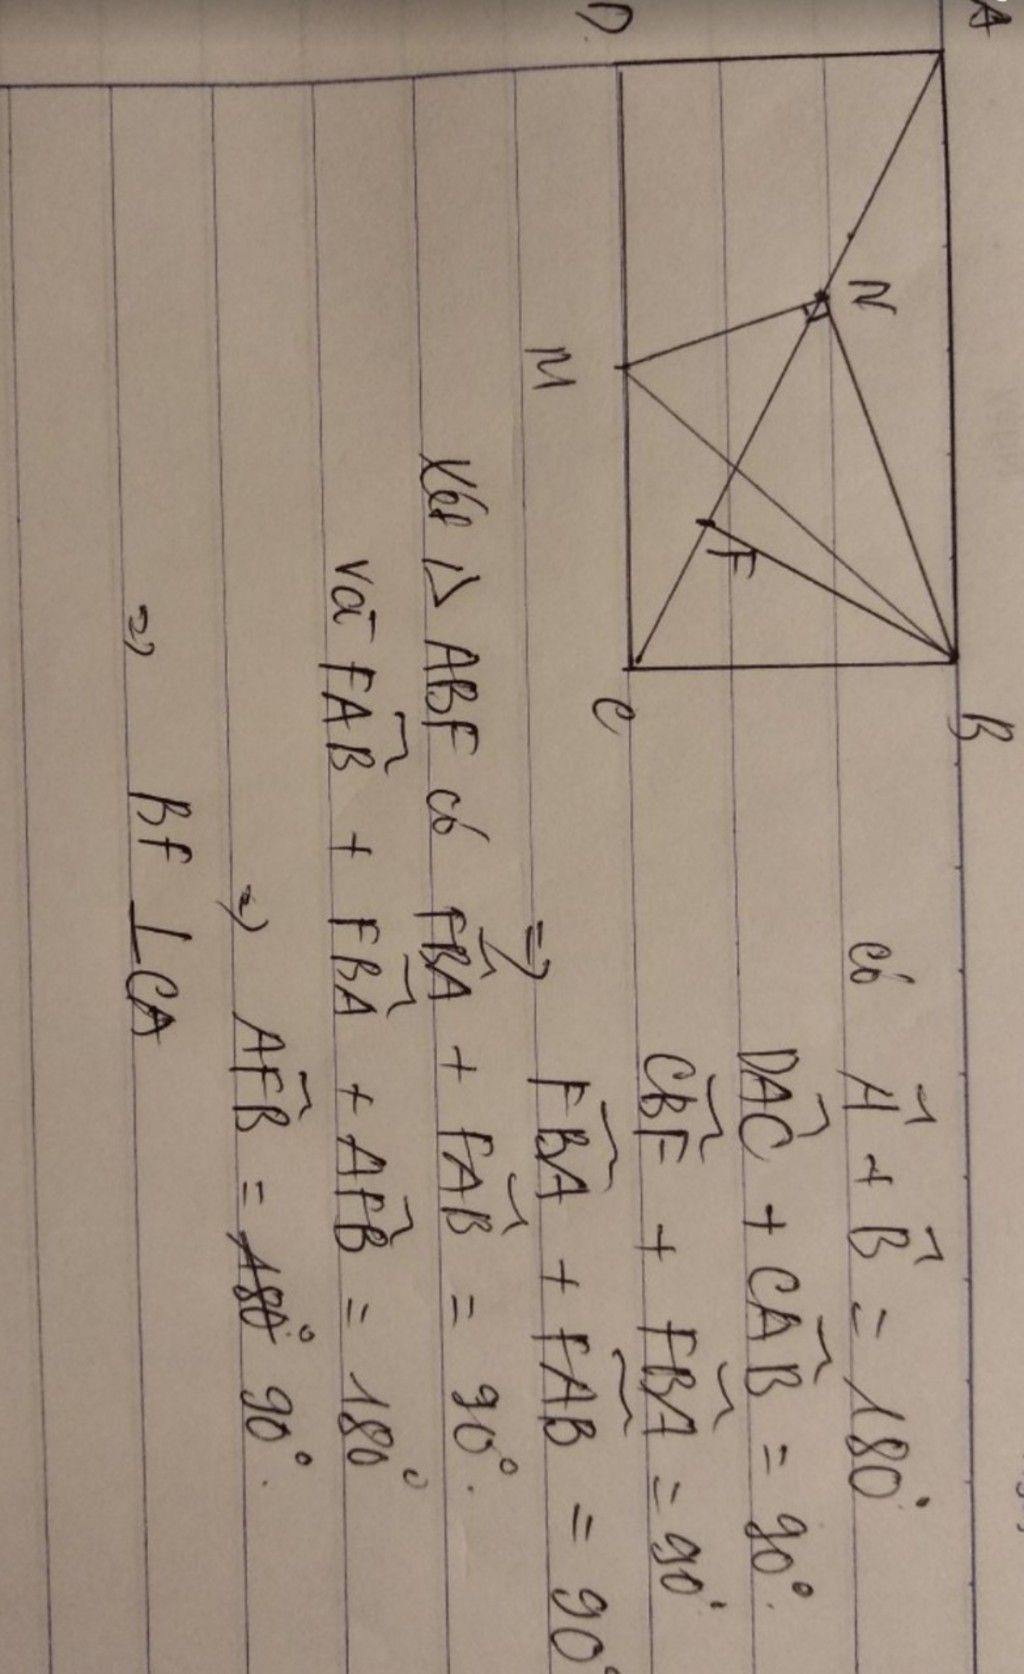 A
B
N
F
D
M
C
có Â + B̂ = 180°
DÂC + CÂB = 90°.
CB̂F + FB̂A = 90°
=> FB̂A + FÂB = 90°
Xét △ ABF có FB̂A + FÂB = 90°.
và FÂB + FB̂A + AF̂B = 180°
=> AF̂B = 180° 90°.
=> BF ⊥ CA